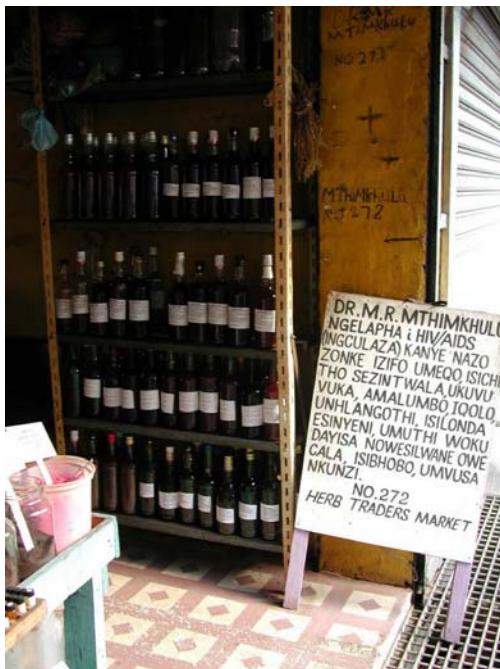 MTHIMKHULU
NO.272
MTHIMKHULU
NO.272
DR.M.R.MTHIMKHULU
NGELAPHA i HIV/AIDS
(INGCULAZA) KANYE NAZO
ZONKE IZIFO UMEQO, ISICH
THO SEZINTWALA, UKUVU
VUKA, AMALUMBO, IQOLO,
UNHLANGOTHI, ISILONDA
ESINYENI, UMUTHI WOKU
DAYISA NOWESILWANE OWE
CALA, ISIBHOBO, UMVUSA
NKUNZI.
NO.272
HERB TRADERS MARKET